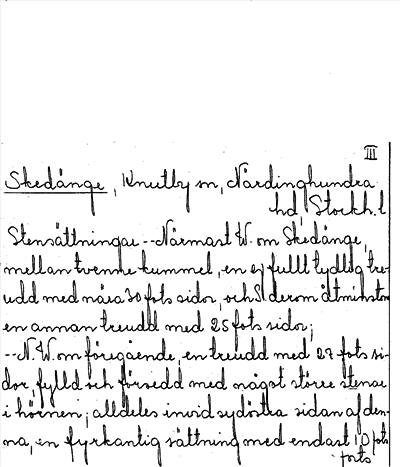 III
Skedånge, Knutby sn, Närdinghundra
hd, Stockh. l
Stensättningar -- Närmast W. om Skedånge,
mellan tvenne kummel, en ej fullt tydlig tre-
udd med nära 30 fots sidor, och S derom åtminstone
en annan treudd med 25 fots sidor;
-- N.W. om föregående, en treudd med 27 fots si-
dor, fylld och försedd med något större stenar
i hörnen; alldeles invid sydöstra sidan af den-
na, en fyrkantig sättning med endast 10 fots
forts